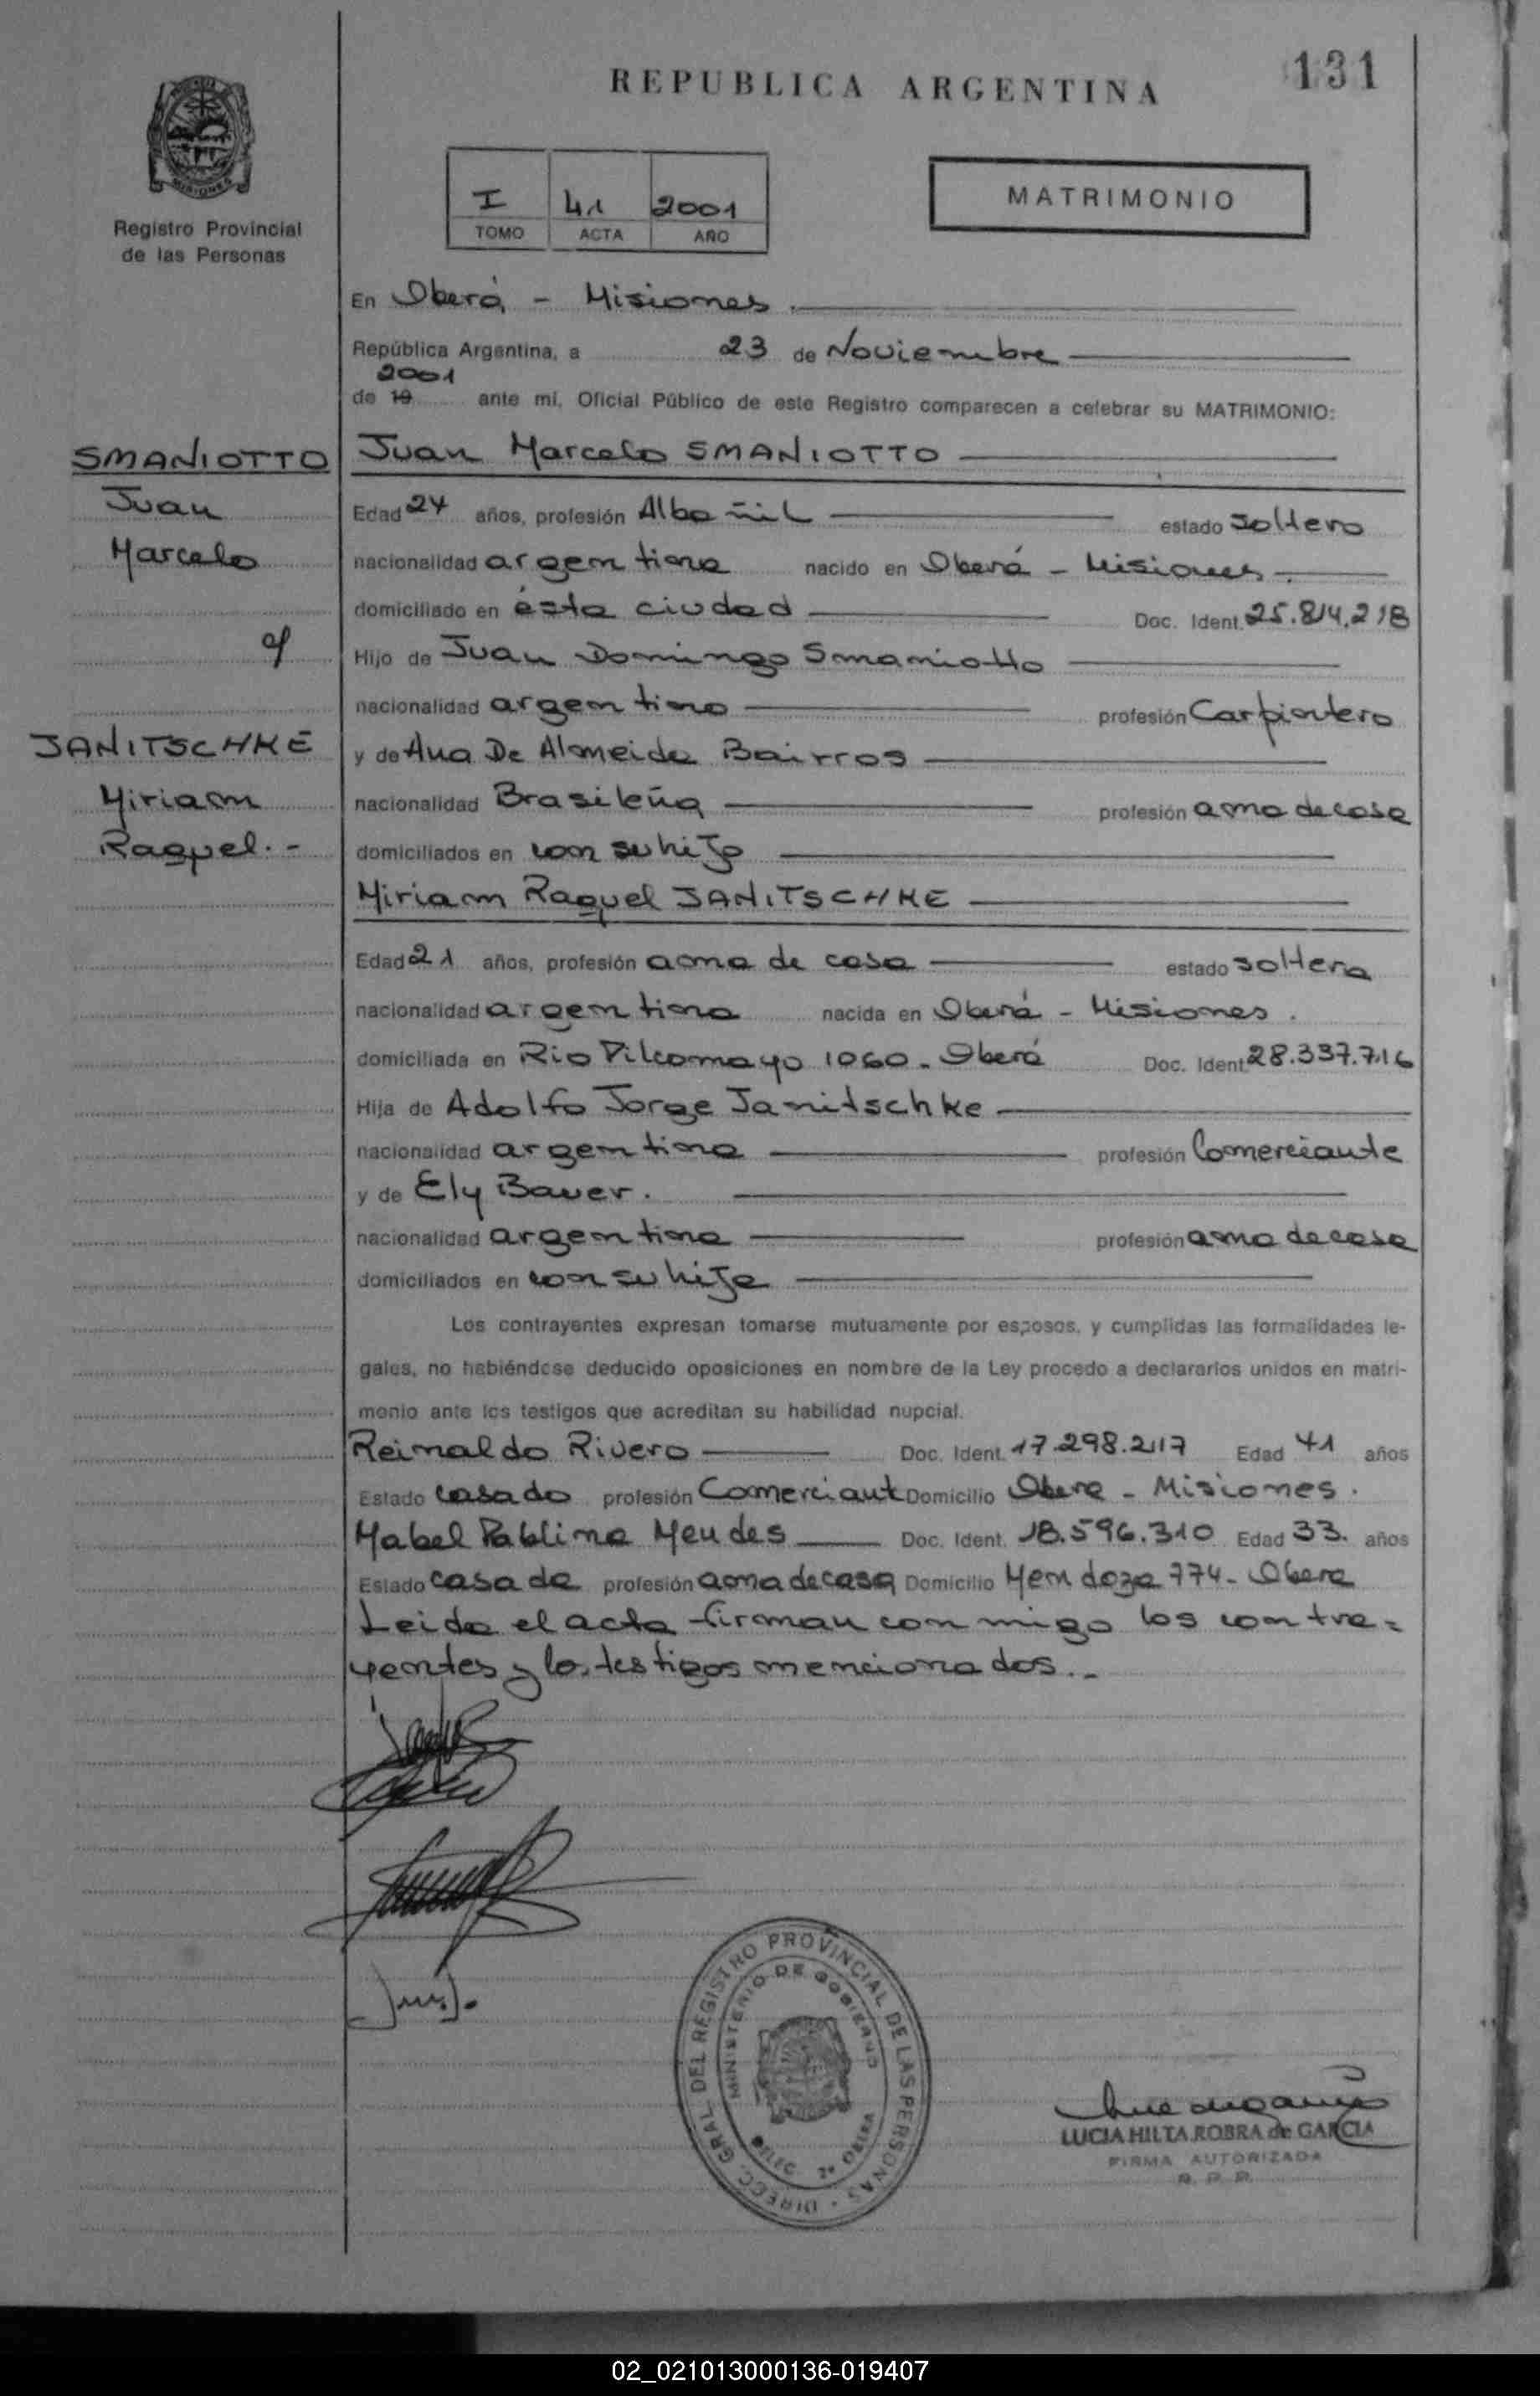 131
REPUBLICA ARGENTINA
MISIONES
Registro Provincial
de las Personas
I 41 2001
TOMO ACTA AÑO
MATRIMONIO
En Oberá - Misiones.
República Argentina, a 23 de Noviembre
2001
de 19 ante mi, Oficial Público de este Registro comparecen a celebrar su MATRIMONIO:
SMANIOTTO
Juan
Marcelo
c/
JANITSCHKE
Miriam
Raquel.-
Juan Marcelo SMANIOTTO
Edad 24 años, profesión Albañil estado soltero
nacionalidad argentina nacido en Oberá - Misiones.
domiciliado en ésta ciudad Doc. Ident. 25.814.218
Hijo de Juan Domingo Smaniotto
nacionalidad argentino profesión Carpintero
y de Ana De Almeida Bairros
nacionalidad Brasileña profesión ama de casa
domiciliados en con su hijo
Miriam Raquel JANITSCHKE
Edad 21 años, profesión ama de casa estado soltera
nacionalidad argentina nacida en Oberá - Misiones.
domiciliada en Rio Pilcomayo 1060 - Oberá Doc. Ident. 28.337.716
Hija de Adolfo Jorge Janitschke
nacionalidad argentina profesión Comerciante
y de Ely Bauer.
nacionalidad argentina profesión ama de casa
domiciliados en con su hija
Los contrayentes expresan tomarse mutuamente por esposos, y cumplidas las formalidades le-
gales, no habiéndose deducido oposiciones en nombre de la Ley procedo a declararlos unidos en matri-
monio ante los testigos que acreditan su habilidad nupcial.
Reinaldo Rivero Doc. Ident. 17.298.217 Edad 41 años
Estado casado profesión Comerciant Domicilio Obera - Misiones.
Mabel Pablina Mendes Doc. Ident. 18.596.310 Edad 33. años
Estado casada profesión ama de casa Domicilio Mendoza 774 - Obera
Leida el acta firman con migo los contra=
yentes y los testigos mencionados.-
DIRECC. GRAL. DEL REGISTRO PROVINCIAL DE LAS PERSONAS
MINISTERIO DE GOBIERNO
DELEG. 2ª OBERA
LUCIA HILTA ROBRA de GARCIA
FIRMA AUTORIZADA
R. P. P.
02_021013000136-019407